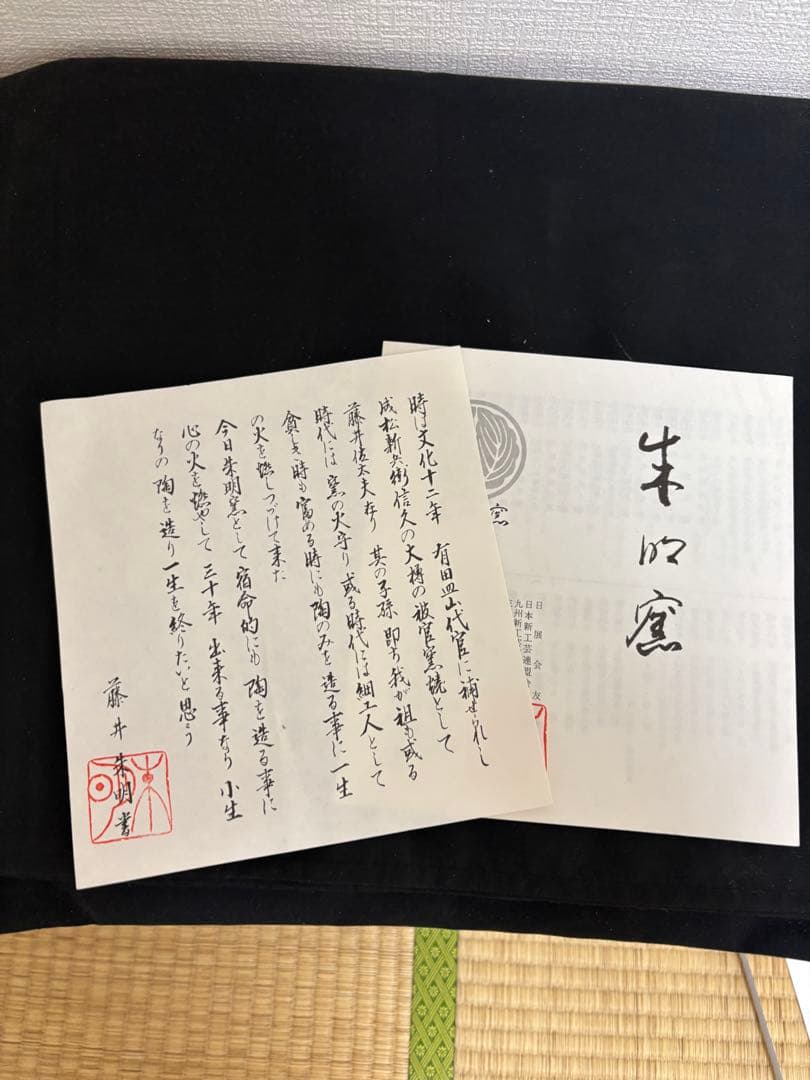 時は文化十二年 有田皿山代官に補せられし
成松新兵衛信久の大樽の被官窯焼として
藤井佐太夫なり 其の子孫 即ち我が祖も或る
時代には 窯の火守り 或る時代には細工人として
貧しき時も富める時にも陶のみを造る事に一生
の火を燃しつづけて来た
今日朱明窯として宿命的にも 陶を造る事に
心の火を燃やして 三十年 出来る事なり 小生
なりの 陶を造り一生を終りたいと思う
藤井朱明書
朱明
朱明窯
窯
日展会友
日本新工芸連盟会
九州新工芸